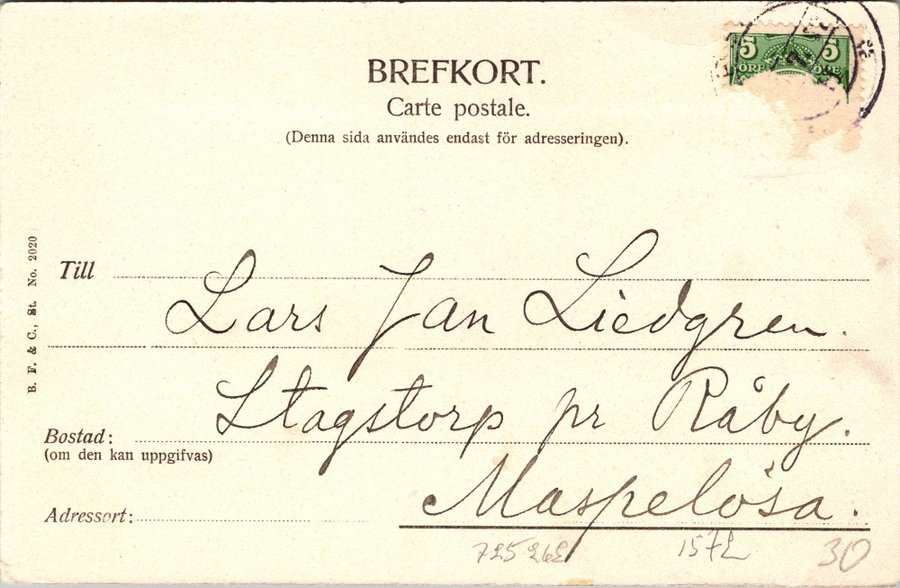 5 5
ÖRE ÖRE
BREFKORT.
Carte postale.
(Denna sida användes endast för adresseringen).
B. F. & C., St. No. 2020
Till Lars Jan Liedgren.
Stagstorp pr Råby.
Bostad:
(om den kan uppgifvas)
Maspelösa.
Adressort:
30